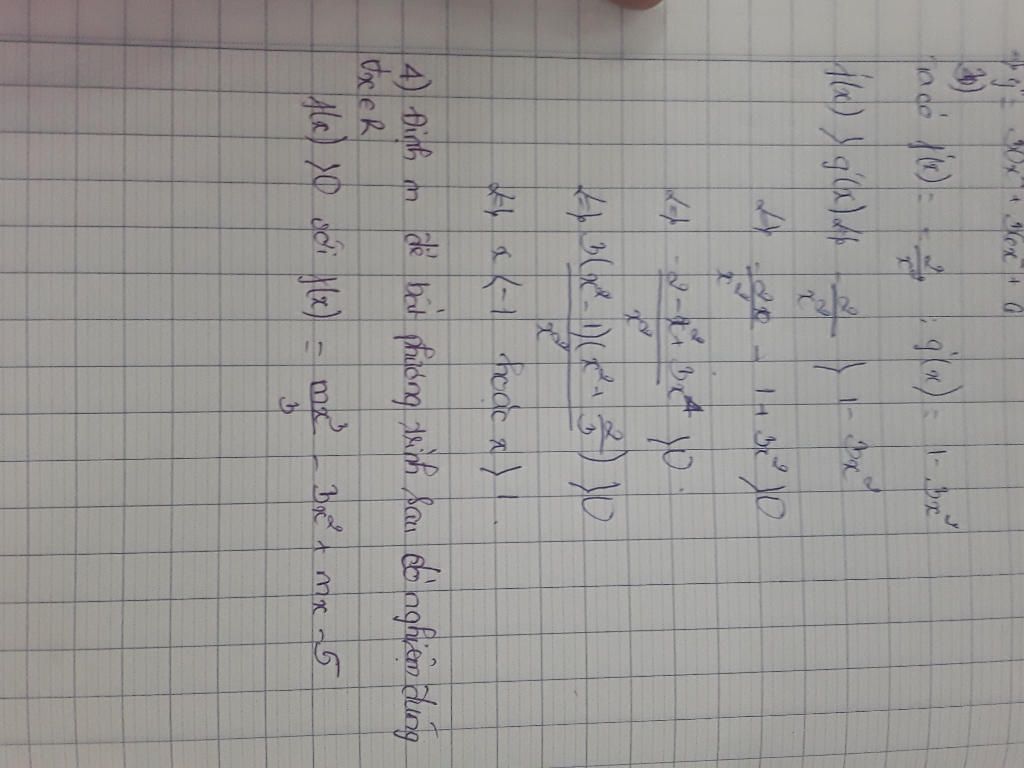 y' = 30x⁴ + 36x² + 6
3b)
Ta có f'(x) = -2/x² ; g'(x) = 1 - 3x²
f'(x) > g'(x) <=> -2/x² > 1 - 3x²
<=> -2/x² - 1 + 3x² > 0
<=> (-2 - x² + 3x⁴)/x² > 0.
<=> 3(x² - 1)(x² + 2/3)/x² > 0
<=> x < -1 hoặc x > 1.
4) Định m để bất phương trình sau đó nghiệm đúng
∀x ∈ R
f'(x) > 0 với f(x) = mx³/3 - 3x² + mx - 5